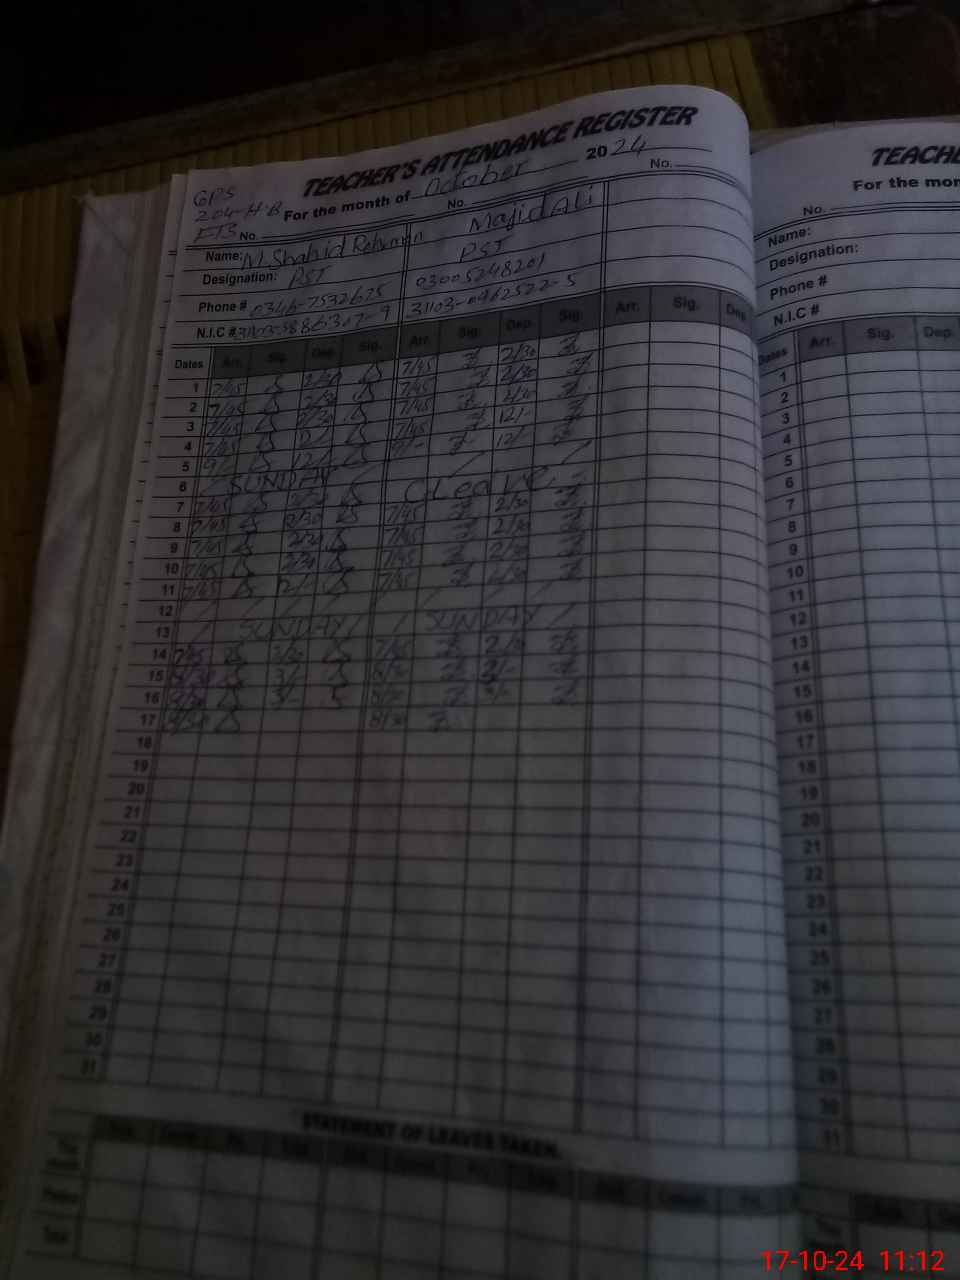 TEACHER'S ATTENDANCE REGISTER
GPS
204-H-B
For the month of October 2024
No. No. No.
Name: M Shahid Rehman Majid Ali
Designation: PST PST
Phone # 0346-7532675 03005248201
N.I.C # 31103-0962522-5
Dates Arr. Sig. Dep. Sig. Arr. Sig. Dep. Sig. Arr. Sig. Dep
1 7/45 2/30 7/45 2/30
2 7/45 2/30 7/45 2/30
3 7/45 2/30 7/45 2/30
4 7/45 12/- 7/45 12/-
5 9/- 12/- 9/- 12/-
6 SUNDAY
7 7/45 2/30 C Leave
8 7/45 2/30 7/45 2/30
9 7/45 2/30 7/45 2/30
10 7/45 2/30 7/45 2/30
11 7/45 12/- 7/45
12
13 SUNDAY SUNDAY
14 7/45 2/30 7/45 2/30
15 8/30 3/- 8/30 3/-
16 8/30 3/- 8/30 3/-
17 8/30 8/30
18
19
20
21
22
23
24
25
26
27
28
29
30
31
STATEMENT OF LEAVES TAKEN.
TEACHE
For the mon
No.
Name:
Designation:
Phone #
N.I.C #
Dates Arr. Sig. Dep.
1
2
3
4
5
6
7
8
9
10
11
12
13
14
15
16
17
18
19
20
21
22
23
24
25
26
27
28
29
30
31
17-10-24 11:12